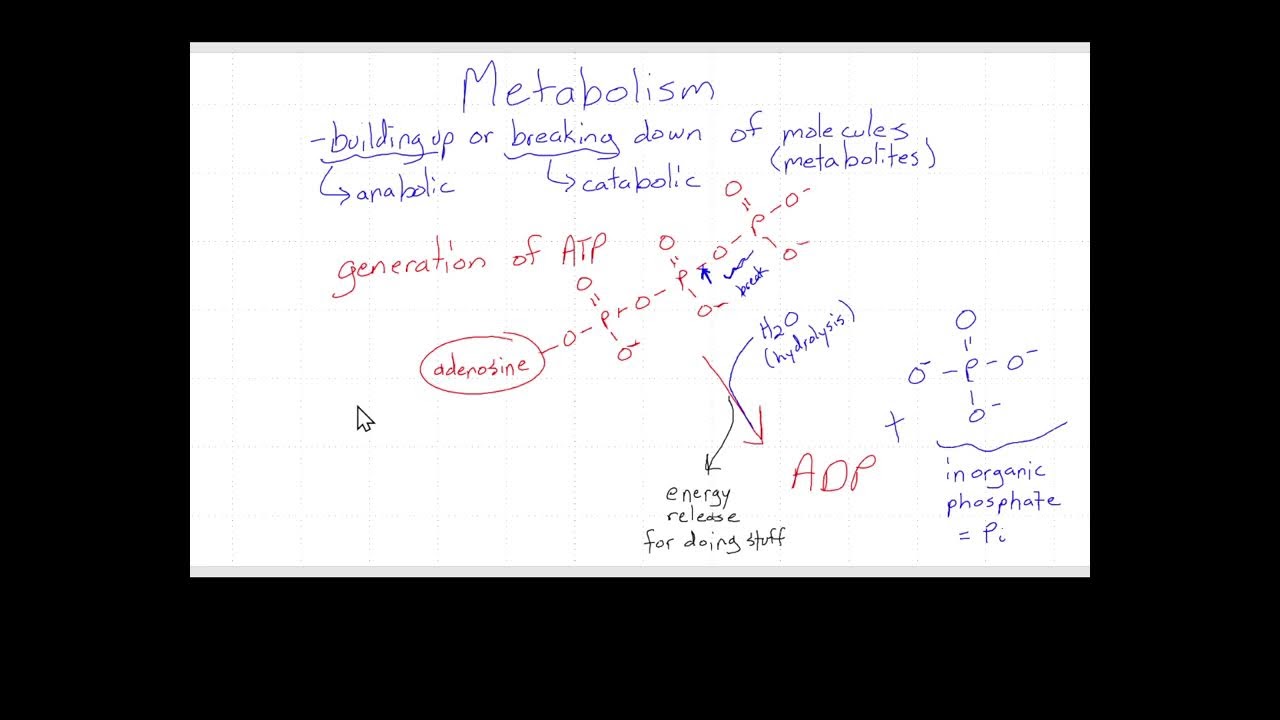 Metabolism
- building up or breaking down of molecules
(metabolites)
↳ anabolic
↳ catabolic
generation of ATP
O
O⁻
P
O
O⁻
O
P
O
O⁻
break
O
P
O
O⁻
O
adenosine
H₂O
(hydrolysis)
energy
release
for doing stuff
ADP
+
O
O⁻ - P - O⁻
O⁻
inorganic
phosphate
= Pi